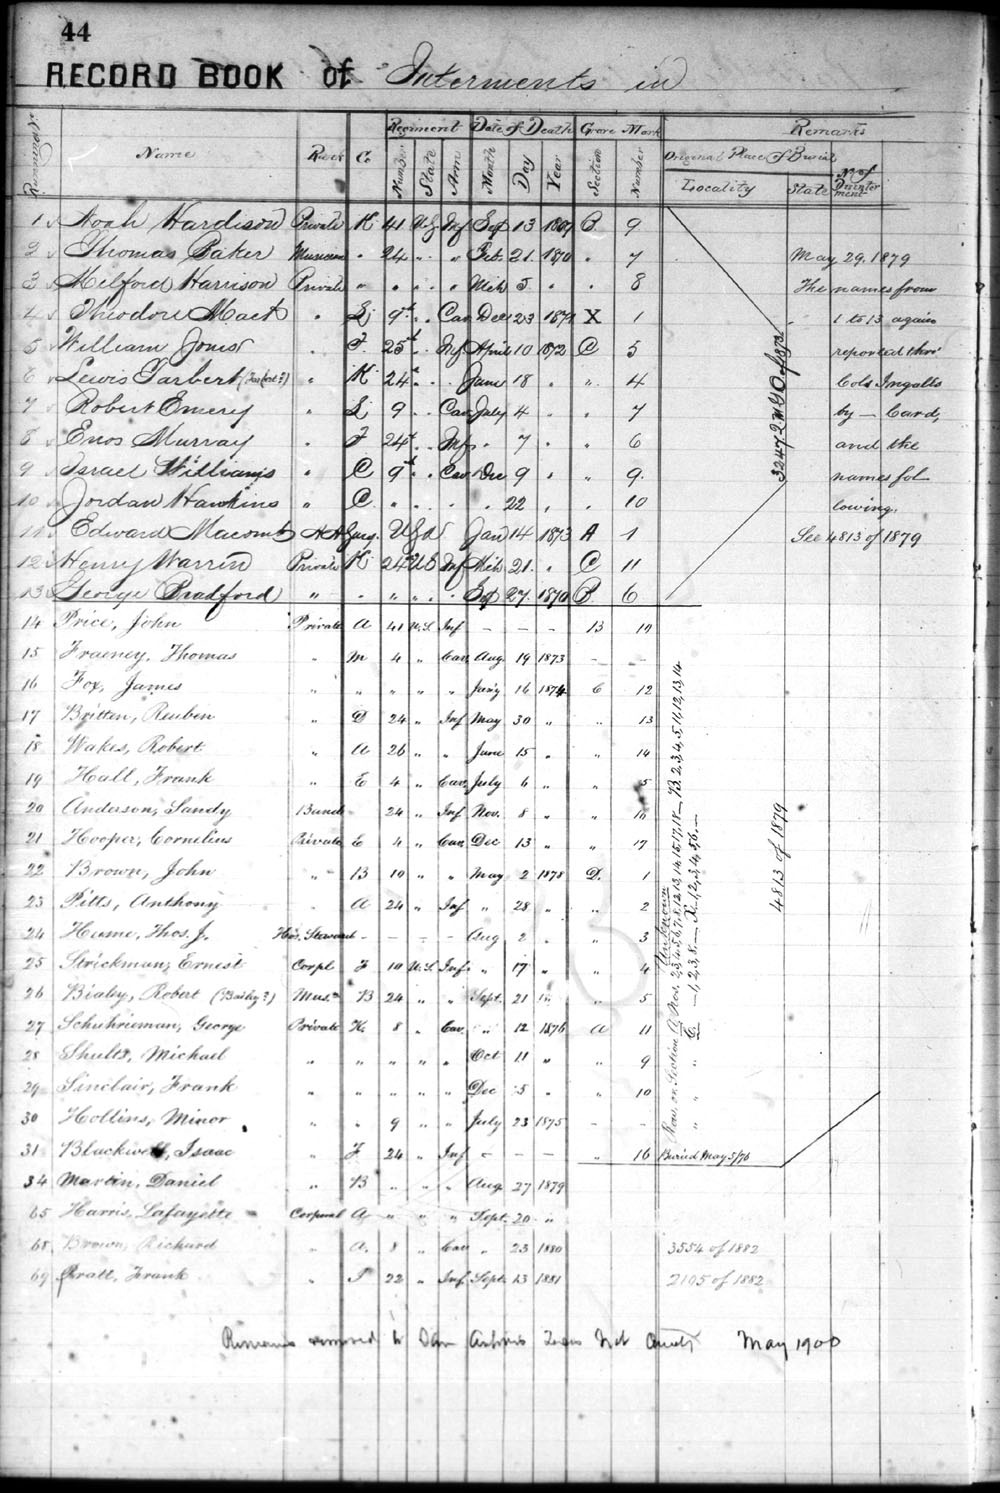 44
RECORD BOOK of Interments in
Regiment Date of Death Grave Mark Remarks
Name Rank Co Number State Arm Month Day Year Section Number Original Place of Burial
Locality State No of Disinterment
1 Noah Hardison Private K 41 U.S Inf Sep 13 1869 B 9
2 Thomas Baker Musician " 24 " " Feb. 21 1870 " 7 May 29. 1879
3 Milford Harrison Private " " " " Mch 5 " " 8 The names from
4 Theodore Mact " L 9th " Cav Dec 23 1871 X 1 1 to 13 again
5 William Jones " F. 25th " Inf April 10 1872 C 5 reported thro'
6 Lewis Tarbert (Torbert?) " K 24th " " June 18 " " 4 Cols Ingalls
7 Robert Emery " L 9 " Cav July 4 " " 7 by — Card,
8 Enos Murray " F 24th " Inf " 7 " " 6 and the
9 Israel Williams " C 9th " Cav Dec 9 " " 9. names fol
10 Jordan Hawkins " C " " " " 22 " " 10 lowing.
11 Edward Macomb U.S.A Jan 14 1873 A 1 See 4813 of 1879
12 Henry Warren Private K 24th U S Inf Mch 21. " C 11
13 George Bradford " " " " " Sep 27. 1870 B 6
32472 M G O of 1873
14 Price, John Private A 41 U.S. Inf — — — B 10
15 Frainey, Thomas " M 4 " Cav. Aug 19 1873 — —
16 Fox, James " " " " " Jan'y 16 1874 C 12
17 Britten, Reuben " D 24 " Inf May 30 " " 13
18 Wakes, Robert " A 26 " " June 15 " " 14
19 Hall, Frank " E 4 " Cav. July 6 " " 5
20 Anderson, Sandy Band 24 " Inf Nov. 8 " "
21 Hooper, Cornelius Private E 4 " Cav. Dec 13 " " 17
22 Brown, John " B 10 " " May 2 1878 D. 1
23 Pitts, Anthony " A 24 " Inf " 28 " " 2
24 Hume, Thos. J. Hos. Steward — — — — Aug 2 " " 3
25 Strickman, Ernest Corpl F 10 U.S. Inf. " 17 " " 4
26 Bialey, Robert (Bailey?) Mus. B 24 " " Sept. 21 " 5
27 Schuhrieman, George Private K. 8 " Cav. " 12 1876 A 11
28 Shults, Michael " " " " " Oct 11 " " 9
29 Sinclair, Frank " " " " " Dec 5 " " 10
30 Hollins, Minor " " 9 " " July 23 1875 — —
31 Blackwell, Isaac " F 24 " Inf — — — " 16 Buried May 5/76
34 Martin, Daniel " B " " " Aug. 27 1879
65 Harris, Lafayette Corporal A " " " Sept. 20 "
68 Brown, Richard " A. 8 " Cav " 23 1880 3554 of 1882
69 Pratt, Frank " I 22 " Inf Sept. 13 1881 2105 of 1882
Unknown
4813 of 1879
Remains removed to San Antonio Texas Nat Cemety May 1900